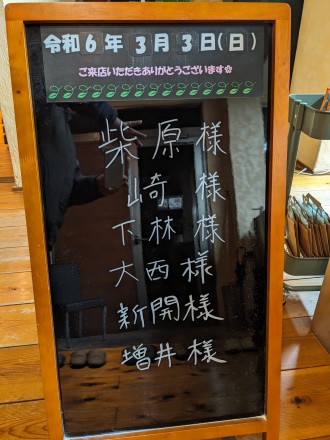 令和6年3月3日(日)
ご来店いただきありがとうございます
柴原様
山崎様
下林様
大西様
新開様
増井様